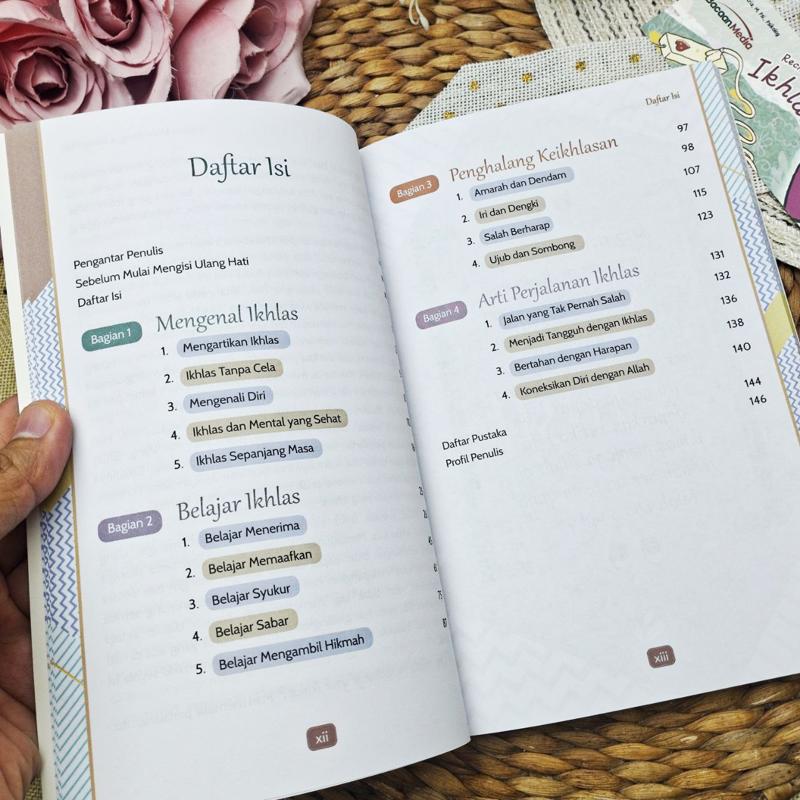 Daftar Isi
Pengantar Penulis
Sebelum Mulai Mengisi Ulang Hati
Daftar Isi
Bagian 1 Mengenal Ikhlas
1. Mengartikan Ikhlas
2. Ikhlas Tanpa Cela
3. Mengenali Diri
4. Ikhlas dan Mental yang Sehat
5. Ikhlas Sepanjang Masa
Bagian 2 Belajar Ikhlas
1. Belajar Menerima
2. Belajar Memaafkan
3. Belajar Syukur
4. Belajar Sabar
5. Belajar Mengambil Hikmah
xii
Daftar Isi
Bagian 3 Penghalang Keikhlasan 97
1. Amarah dan Dendam 98
2. Iri dan Dengki 107
3. Salah Berharap 115
4. Ujub dan Sombong 123
Bagian 4 Arti Perjalanan Ikhlas 131
1. Jalan yang Tak Pernah Salah 132
2. Menjadi Tangguh dengan Ikhlas 136
3. Bertahan dengan Harapan 138
4. Koneksikan Diri dengan Allah 140
Daftar Pustaka 144
Profil Penulis 146
xiii